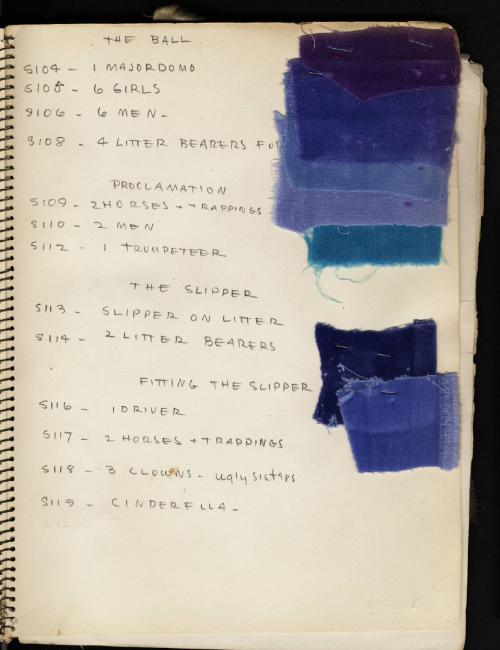 THE BALL
S104 - 1 MAJORDOMO
S105 - 6 GIRLS
S106 - 6 MEN-
S108 - 4 LITTER BEARERS FO
PROCLAMATION
S109 - 2 HORSES + TRAPPINGS
S110 - 2 MEN
S112 - 1 TRUMPETEER
THE SLIPPER
S113 - SLIPPER ON LITTER
S114 - 2 LITTER BEARERS
FITTING THE SLIPPER
S116 - 1 DRIVER
S117 - 2 HORSES + TRAPPINGS
S118 - 3 CLOWNS - Ugly Sisters
S119 - CINDERELLA -
S120